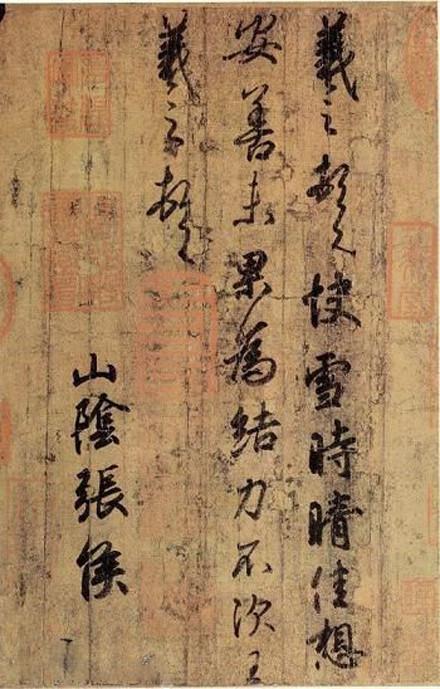 羲之頓首快雪時晴佳想
安善未果為結力不次王
羲之頓首
山陰張侯